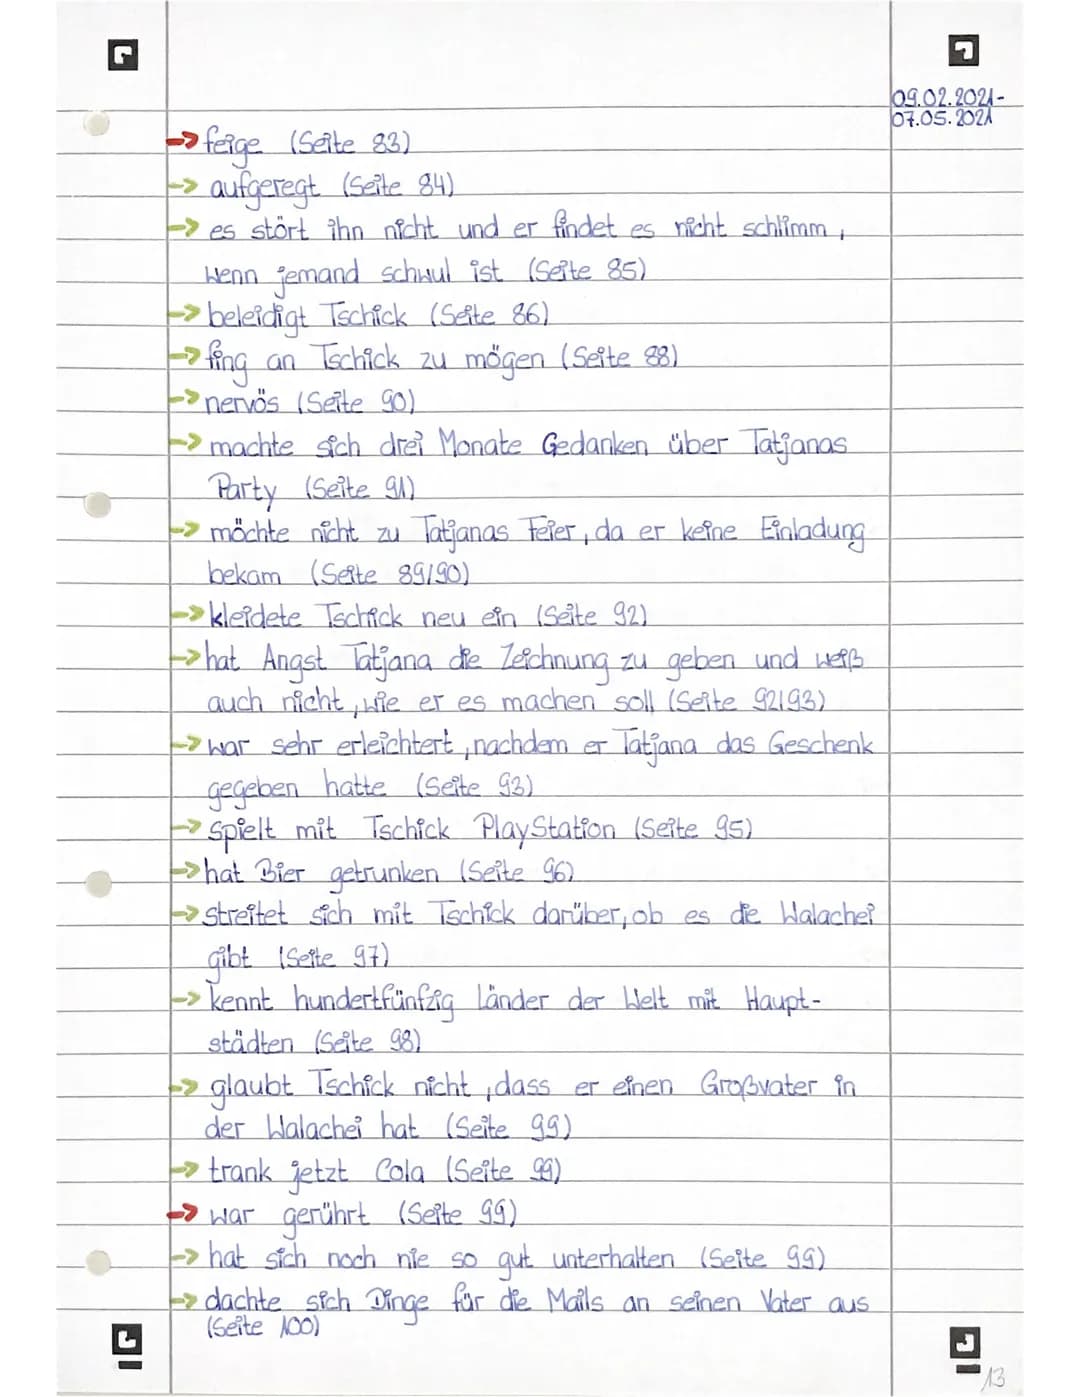 09.02.2021-
07.05.2021
→ feige (Seite 83)
→ aufgeregt (Seite 84)
→ es stört ihn nicht und er findet es nicht schlimm,
wenn jemand schwul ist (Seite 85)
→ beleidigt Tschick (Seite 86)
→ fing an Tschick zu mögen (Seite 88)
→ nervös (Seite 90)
→ machte sich drei Monate Gedanken über Tatjanas
Party (Seite 91)
→ möchte nicht zu Tatjanas Feier, da er keine Einladung
bekam (Seite 89/90)
→ kleidete Tschick neu ein (Seite 92)
→ hat Angst Tatjana die Zeichnung zu geben und weiß
auch nicht, wie er es machen soll (Seite 92/93)
→ war sehr erleichtert, nachdem er Tatjana das Geschenk
gegeben hatte (Seite 93)
→ spielt mit Tschick PlayStation (Seite 95)
→ hat Bier getrunken (Seite 96)
→ streitet sich mit Tschick darüber, ob es die Walachei
gibt (Seite 97)
→ kennt hundertfünfzig Länder der Welt mit Haupt-
städten (Seite 98)
→ glaubt Tschick nicht, dass er einen Großvater in
der Walachei hat (Seite 99)
→ trank jetzt Cola (Seite 99)
→ war gerührt (Seite 99)
→ hat sich noch nie so gut unterhalten (Seite 99)
→ dachte sich Dinge für die Mails an seinen Vater aus
(Seite 100)
13